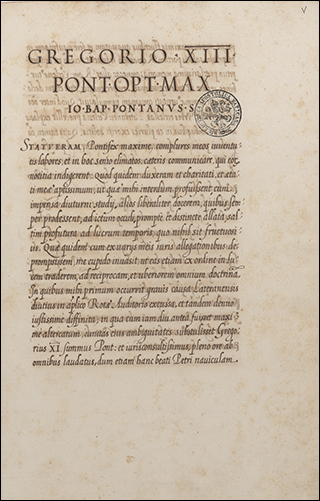 V
GREGORIO · XIII
PONT·OPT·MAX
IO·BAP·PONTANVS·S
STATVERAM, Pontifex maxime, complures meos iuuentu
tis labores, et in hoc senio elimatos, caeteris communicare, qui eor
notitia indigerent. Quod quidem duxeram et charitati, et aeta
ti meae aptissimum, ut quae mihi interdum profuissent cum
impensa diuturni studij, alijs libenliter docerem, quibus sem
per prodessent, ad ictum oculi, prompte et distincte allata, sal
tim profutura ad lucrum temporis, quo nihil sit fructuosi
us. Quae quidem cum ex varijs meis iuris allegationibus de
prompsissem, me cupido inuasit ut eas etiam ex ordine in lu
cem traderem, ad reciprocam, et uberiorem omnium doctrina,
In quibus mihi primum occurrit grauis causa Lateranensis
diutius in aplico Rotae Auditorio excussa, et tandem denuo
iustissime diffinita, in qua cum iam diu antea fuisset maxi
me altercatum, cunctas eius ambiguitates sustulisset Grego
rius XI. summus Pont: et iurisconsultissimus, pleno ore ab
omnibus laudatus, dum etiam hanc beati Petri nauiculam